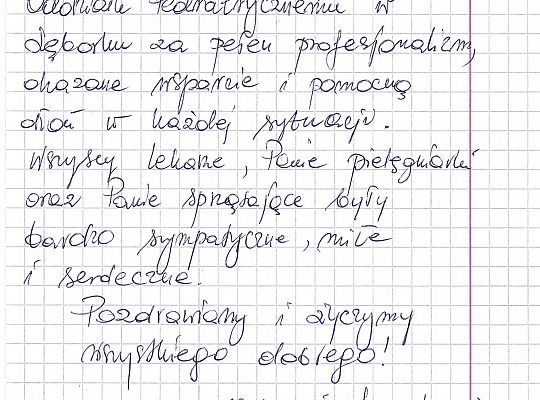 Oddziału Pediatrycznemu w
Lęborku za pełen profesjonalizm,
okazane wsparcie i pomocną
dłoń w każdej sytuacji.
Wszyscy lekarze, Panie pielęgniarki
oraz Panie sprzątające były
bardzo sympatyczne, miłe
i serdeczne.
Pozdrawiamy i życzymy
wszystkiego dobrego!